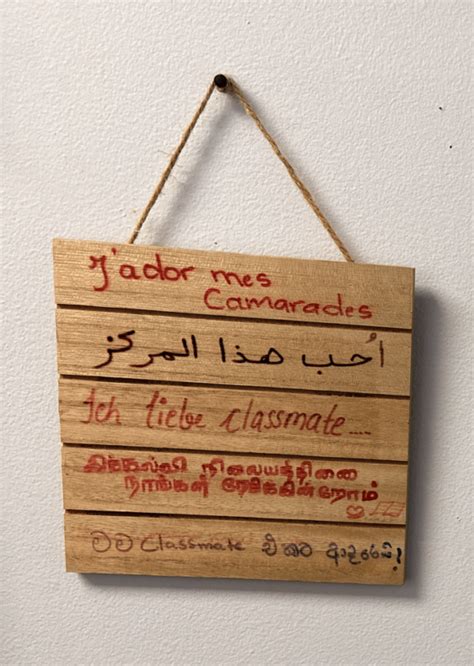 J'ador mes
Camarades
أُحب هذا المركز
Ich liebe classmate....
இக்கல்வி நிலையத்தினை
நாங்கள் நேசிக்கின்றோம்
මම Classmate එකට ආදරෙයි!